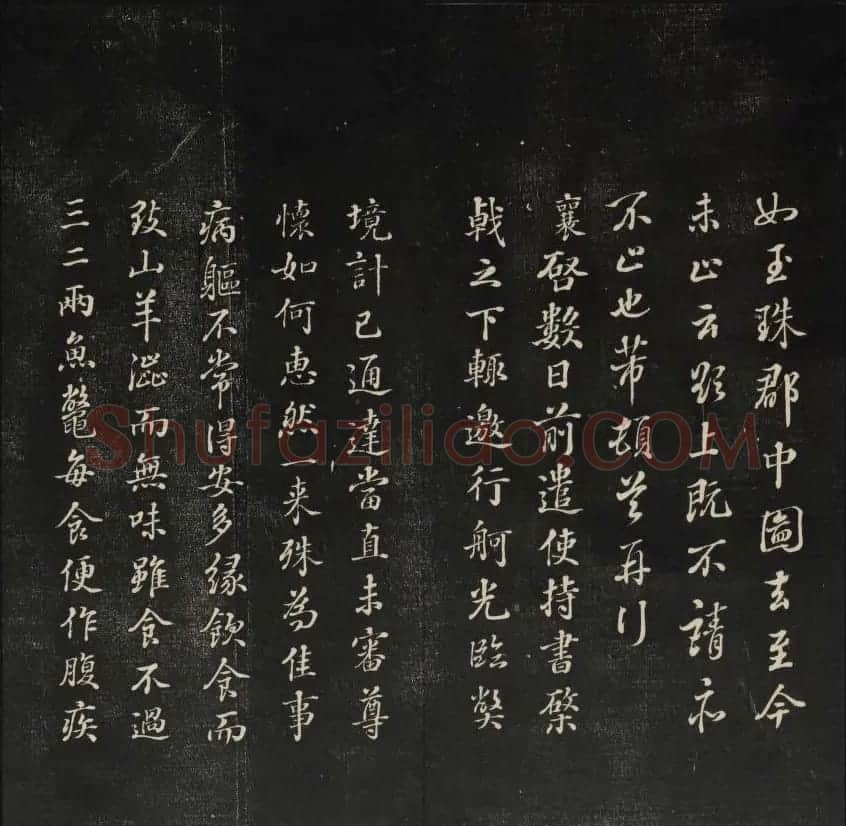 如玉珠郡中圖去至今
未止云題上既不請亦
不止也芾頓首再拜
襄啓數日前遣使持書棨
戟之下輒邀行舸光臨弊
境計已通達當直未審尊
懷如何惠然一来殊為佳事
病軀不常得安多緣飲食而
致山羊澁而無味雖食不過
三二兩魚鼈每食便作腹疾
Shufaziliao.COM